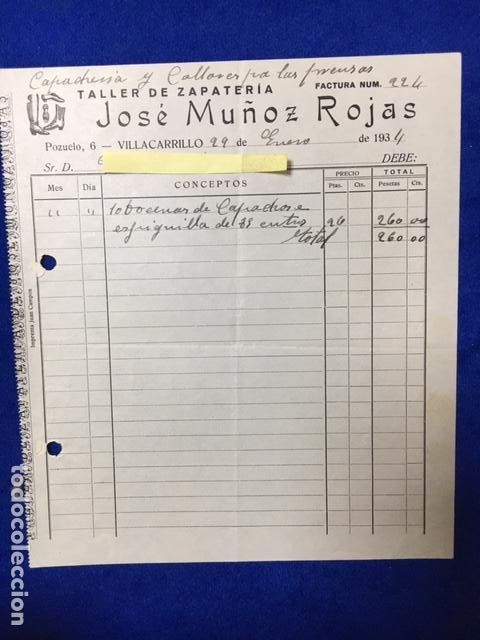 Capachería y Collares pa las prensas
TALLER DE ZAPATERÍA FACTURA NUM. 224
José Muñoz Rojas
Pozuelo, 6 — VILLACARRILLO 29 de Enero de 1934
Sr. D. DEBE:
Mes Día CONCEPTOS PRECIO TOTAL
Ptas. Cts. Pesetas Cts.
10 Docenas de Capachos
espiguilla de 26 260 00
total 260 00
Imprenta Juan Campos
todocoleccion